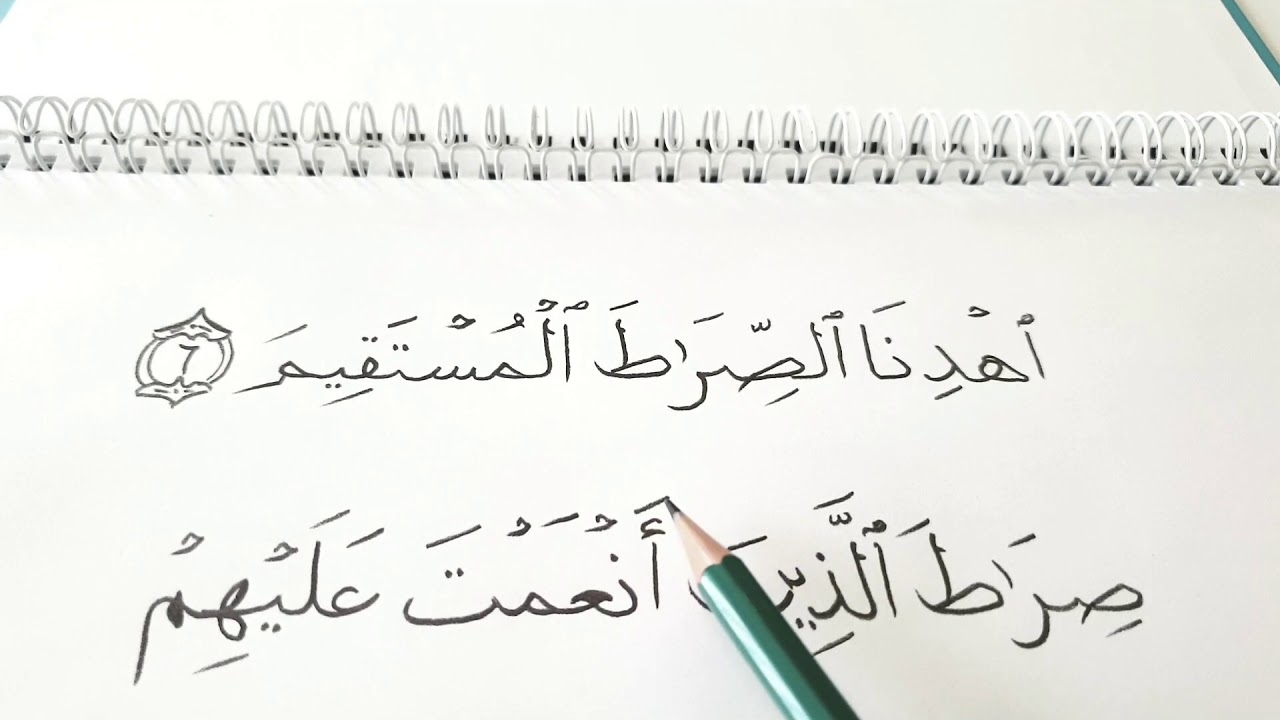 ٱهْدِنَا ٱلصِّرَٰطَ ٱلْمُسْتَقِيمَ ٦
صِرَٰطَ ٱلَّذِينَ أَنْعَمْتَ عَلَيْهِمْ